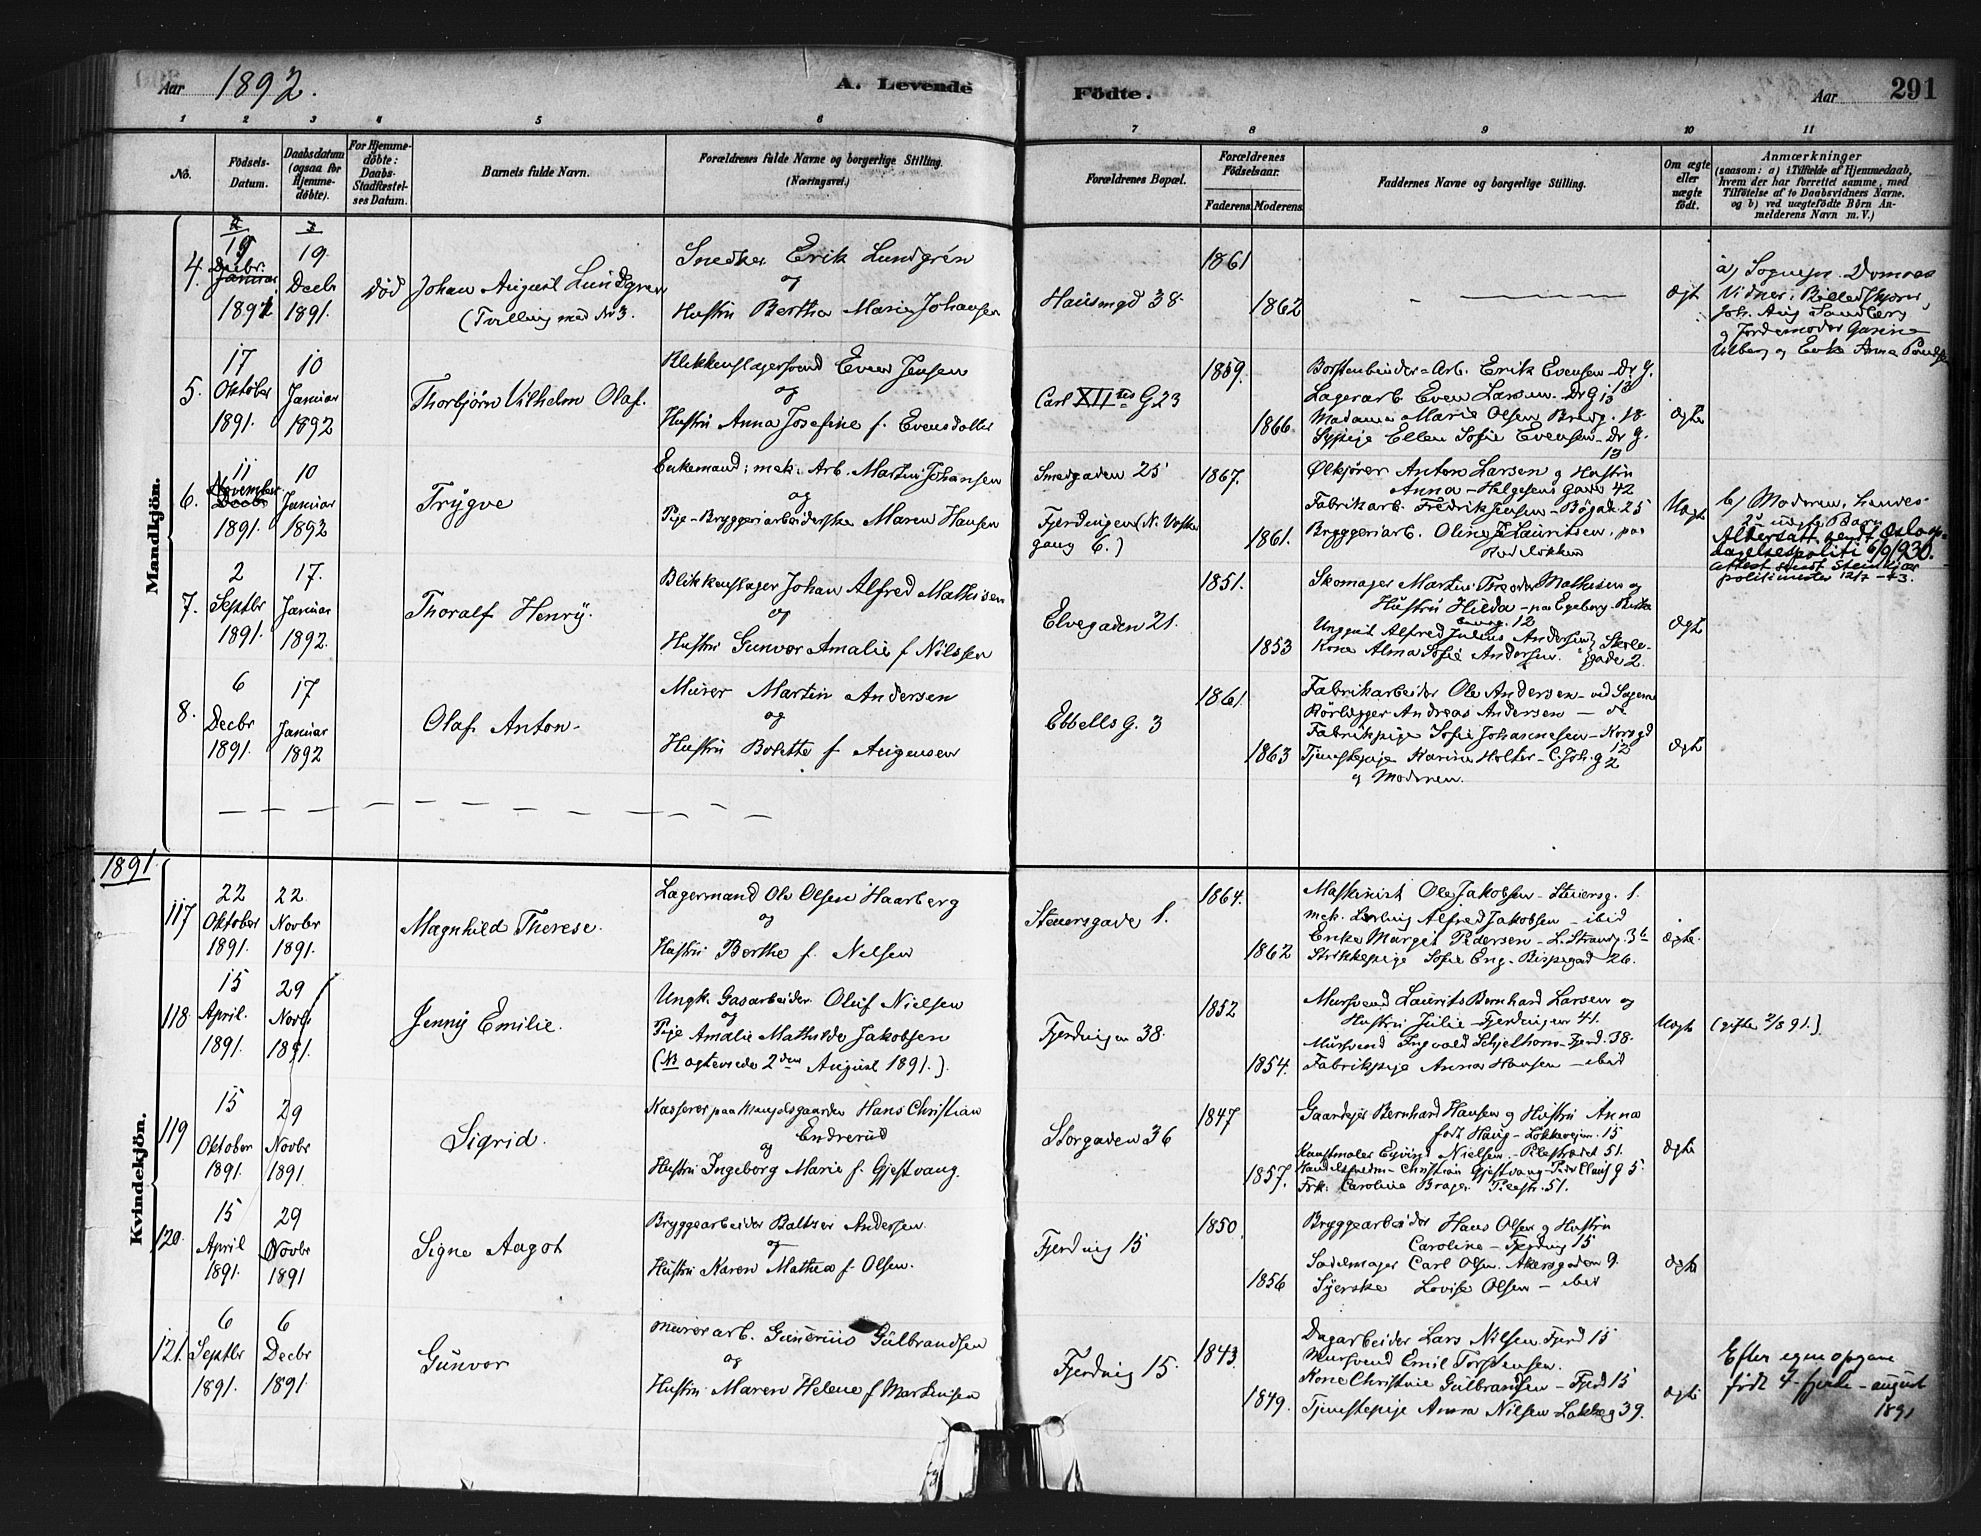 Aar 1892.
A. Levende Födte.
Aar 291
1 2 3 4 5 6 7 8 9 10 11
No.
Födsels-Datum.
Daabsdatum (ogsaa for Hjemme-döbte).
For Hjemme-döbte: Daabs-Stadfæstel-ses Datum.
Barnets fulde Navn.
Forældrenes fulde Navne og borgerlige Stilling. (Næringsvei.)
Forældrenes Bopæl.
Forældrenes Födselsaar.
Faderens. Moderens.
Faddernes Navne og borgerlige Stilling.
Om ægte eller uægte födt.
Anmærkninger
(saasom: a) i Tilfælde af Hjemmedaab, hvem der har forrettet samme, med Tilföielse af to Daabsvidners Navne, og b) ved uægtefödte Börn An-melderens Navn m. V.)
Mandkjön.
4.
19 Decbr. 1891
19. Decbr 1891.
Död
Johan August Lundgren
(Tvilling med No 3.
Snedker Erik Lundgrén
og
Hustru Bertha Marie Johansen
Hausmgd 38.
1861
1862
ægt
a) Sognepr.
Vidner:
Joh. Aug Sandberg
og Jordemoder Garine
og Enke Anna
5.
17 Oktober 1891.
10 Januar 1892
Thorbjörn Vilhelm Olaf.
Blikkenslagersvend Even Jensen
og
Hustru Anna Josefine f. Evensdatter
Carl XIItes G 23
1859.
1866.
Borstenbinder-Arb. Erik Evensen - Dr g. 13
Lagerarb Even Larsen. Dr g 13
Madame Marie Olsen Bredg. 18.
Sypige Ellen Sofie Evensen - Dr g. 13
ægte
6.
11 November 1891.
10 Januar 1892
Trygve
Enkemand; mek. Arb. Martin Johansen
og
Pige - Bryggeriarbeiderske Maren Hansen
Smedgaden 25
Fjerdingen (N. Vaske
gang 6.)
1867.
1861.
Ølkjører Anton Larsen og Hustru
Anna - Helgesens Gade 42
Fabrikarb. Fredrik Jensen - Bögade 25
Bryggeriarb. Oline Lauritsen, paa
Rodeløkken
Uægte
b) Moderen, hendes
2d uægte Barn
Altersatt. sendt Oslo op-
dagelsespoliti 6/9 1930.
attest sendt Steinkjær
politimester 12/7 - 43.
7.
2 Septbr 1891.
17. Januar 1892.
Thoralf Henry.
Blikkenslager Johan Alfred Mathisen
og
Hustru Gunvor Amalie f Nilssen
Elvegaden 21.
1851.
1853
Skomager Martin Teodor Mathisen og
Hustru Hilda - paa Egeberg
Unggut Alfred Julius Andersen
Kone Alma Sofie Andersen
gade 2.
ægte
8.
6 Decbr 1891.
17 Januar 1892
Olaf Anton.
Murer Martin Andersen
og
Hustru Bolette f Augensen
Ebbells g. 3
1861.
1863
Fabrikarbeider Ole Andersen - ved Sagene
Rörlægger Andreas Andersen - do
Fabrikpige Sofie Johannesen - Korsgd 12
Tjenstepige Karine Holter - C. Joh. g 2
og Moderen.
ægte
1891.
Kvindekjön.
117
22 Oktober 1891.
22. Novbr 1891.
Magnhild Therese.
Lagermand Ole Olsen Haarberg
og
Hustru Berthe f. Nelsen
Steuersgade 1.
1864.
1862
Maskinist Ole Jakobsen - Steuersg. 1.
mek. Lærling Alfred Jakobsen - ibid
Enke Margit Pedersen - L. Strandg. 36
Strikkepige Sofie Eng - Bispegad 26.
ægte.
118.
15 April. 1891.
29 Novbr 1891.
Jenny Emilie.
Ungk. Gasarbeider Oluf Nielsen
og
Pige Amalie Mathilde Jakobsen
(NB ægteviede 2den August 1891.)
Fjerdingen 38.
1852
1854.
Mursvend Laurits Bernhard Larsen og
Hustru Julie - Fjerdingen 41.
Mursvend Ingvald Schjelhorn - Fjerd. 38.
Fabrikpige Anna Hansen - ibid
Uægte
(gifte 2/8 91.)
119
15 Oktober 1891.
29 Novbr 1891
Sigrid.
Kasserer paa Mangelsgaarden Hans Christian
og Endrerud
Hustru Ingeborg Marie f. Gjestvang.
Storgaden 36
1847
1857.
Gaardejer Bernhard Hansen og Hustru Anna
født Haug - Løkkevejen. 15
Kunstmaler Eyvind Nielsen - Pilestrædet 51.
Handelsfuldm. Christian Gjestvang - Peder Claus g 5.
Frk. Caroline Brager Pilestr. 51.
ægte
120.
15 April 1891.
29 Novbr 1891
Signe Aagot
Bryggearbeider Baltzer Andersen.
og
Hustru Karen Mathea f. Olsen.
Fjerding 15
1850.
1856
Bryggearbeider Hans Olsen og Hustru
Caroline - Fjerding 15
Sadelmager Carl Olsen. Akersgaden 9.
Syerske Lovise Olsen - ibid
ægte
121.
6 Septbr 1891.
6 Decbr 1891.
Gunvor
Murerarb. Gunerius Gulbrandsen
og
Hustru Maren Helene f Martinsen
Fjerding 15.
1843.
1849.
Dagarbeider Lars Nilsen Fjerd 15
Mursvend Emil Torstensen.
Kone Christine Gulbrandsen - Fjerd 15
Tjenstepige Anna Nilsen Løkkeg 39.
ægte
Efter egen opgave
født 4 - fjerde - august
1891